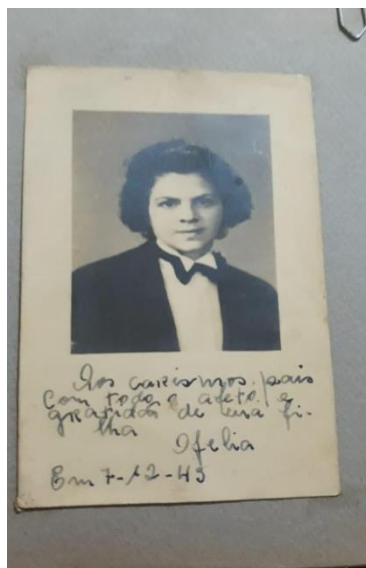 Aos carismos pais
com todo o afeto e
gratidão de uma fi-
lha
Ofelia
Em 7-12-43